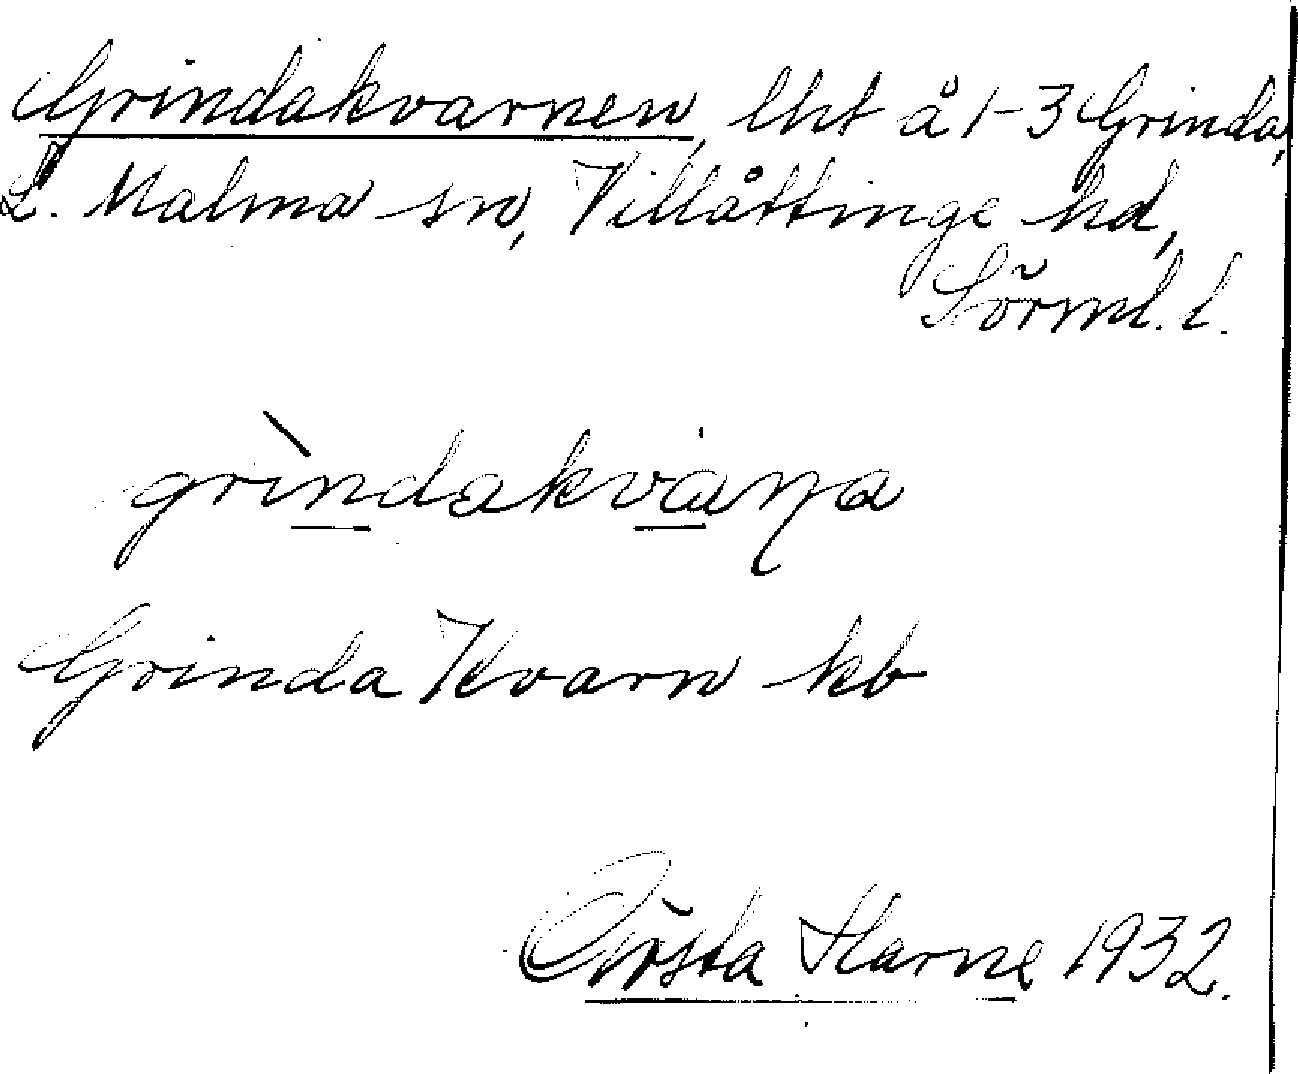 Grindakvarnen, lht å 1-3 Grinda,
L. Malma sn, Villåttinge hd,
Sörml. l.
grìndakvaṇa
Grinda Kvarn kb
Harne 1932.